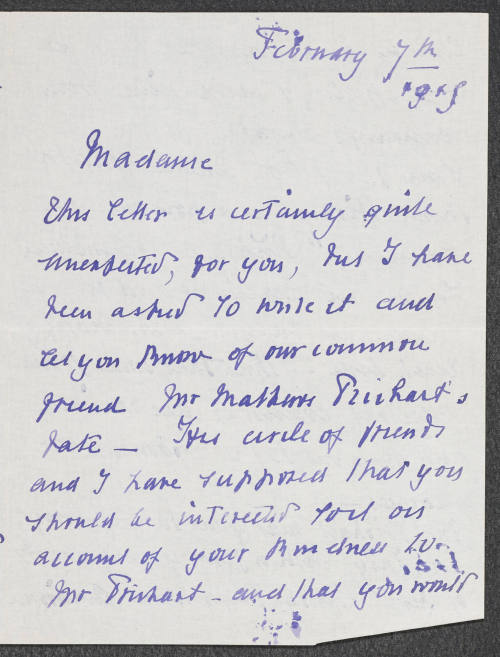 February 7th
1915
Madame
This letter is certainly quite
unexpected, for you, but I have
been asked to write it and
let you know of our common
friend Mr Mathews Prichart's
fate — His circle of friends
and I have supposed that you
should be interested and on
account of your kindness to
Mr Prichart - and that you would